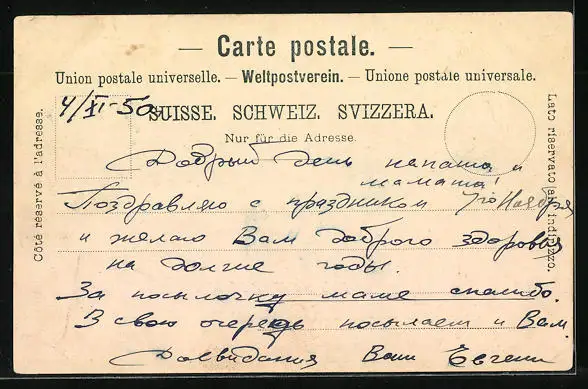 — Carte postale. —
Union postale universelle. — Weltpostverein. — Unione postale universale.
SUISSE. SCHWEIZ. SVIZZERA.
Nur für die Adresse.
Côté réservé à l'adresse.
Lato riservato all' indirizzo.
4/XI-50
Добрый день папаша и
мамаша!
Поздравляю с праздником 7го Ноября
и желаю Вам доброго здоровия
на долгие годы.
За посылочку маме спасибо.
В свою очередь посылаем и Вам.
Досвидания Ваш Евгени